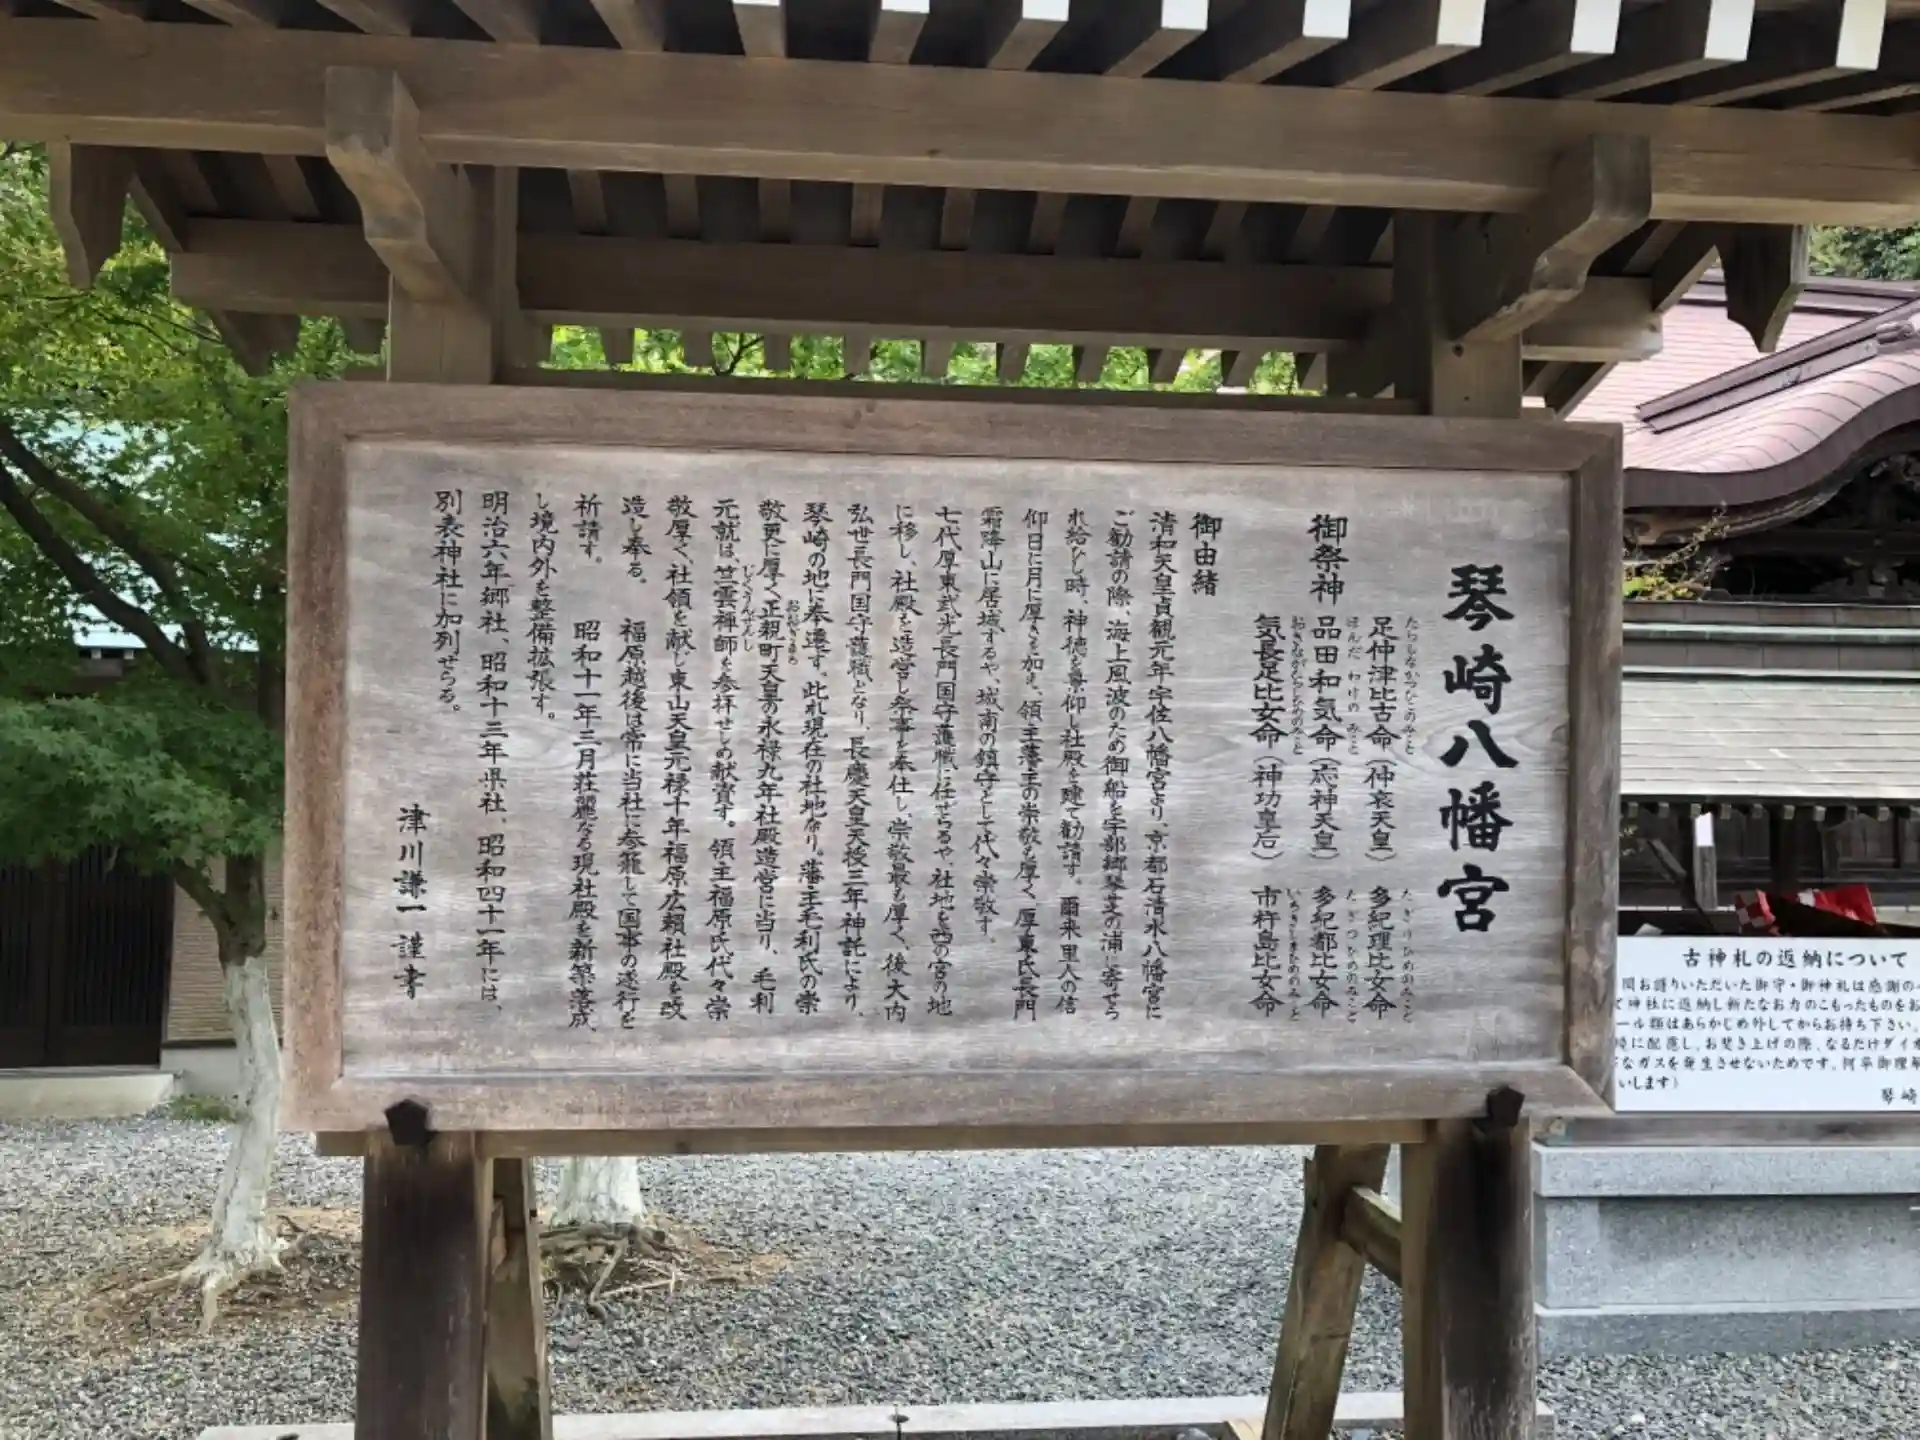 琴崎八幡宮
御祭神
足仲津比古命（仲哀天皇）　多紀理比女命
たらしなかつひこのみこと　たぎりひめのみこと
品田和気命（応神天皇）　多紀都比女命
ほんだわけのみこと　たぎつひめのみこと
気長足比女命（神功皇后）　市杵島比女命
おきながたらしひめのみこと　いちきしまひめのみこと
御由緒
清和天皇貞観元年宇佐八幡宮より、京都石清水八幡宮に
ご勧請の際、海上風波のため御船を宇部郷琴芝の浦に寄せら
れ給ひし時、神徳を景仰し社殿を建て勧請す。爾来里人の信
仰日に月に厚きを加へ、領主藩主の崇敬も厚く、厚東氏長門
霜降山に居城するや、城南の鎮守として代々崇敬す。
七代厚東武光長門国守護職に任ぜらるや、社地を西の宮の地
に移し、社殿を造営し祭事を奉仕し、崇敬最も厚く、後大内
弘世長門国守護職となり、長慶天皇天授三年神託により、
琴崎の地に奉遷す。此れ現在の社地なり。藩主毛利氏の崇
敬更に厚く正親町天皇の永禄九年社殿造営に当り、毛利
おおぎまち
元就は、竺雲禅師を参拝せしめ献資す。領主福原氏代々崇
じくうんぜんし
敬厚く、社領を献じ東山天皇元禄十年福原広頼社殿を改
造し奉る。　福原越後は常に当社に参籠して国事の遂行を
祈請す。　昭和十一年三月荘麗なる現社殿を新築落成
し境内外を整備拡張す。
明治六年郷社、昭和十三年県社、昭和四十一年には、
別表神社に加列せらる。
津川謙一謹書
古神札の返納について
間お護りいただいた御守・御神札は感謝の
て神社に返納し新たなお力のこもったものをお
ール類はあらかじめ外してからお持ち下さい。
境に配慮し、お焚き上げの際、なるだけダイオ
なガスを発生させないためです。何卒御理解
いします）
琴崎